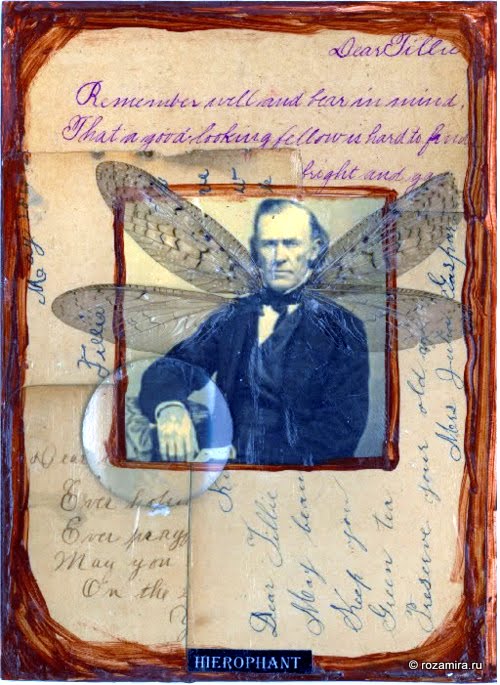 Dear Tillie
Remember well and bear in mind,
That a good looking fellow is hard to find
bright and ga
Tillie
Dear
Ever
Ever pray
May you
On the
Dear Tillie
May
Keep you
Green tea
Preserve your old age
Mrs
HIEROPHANT
© rozamira.ru